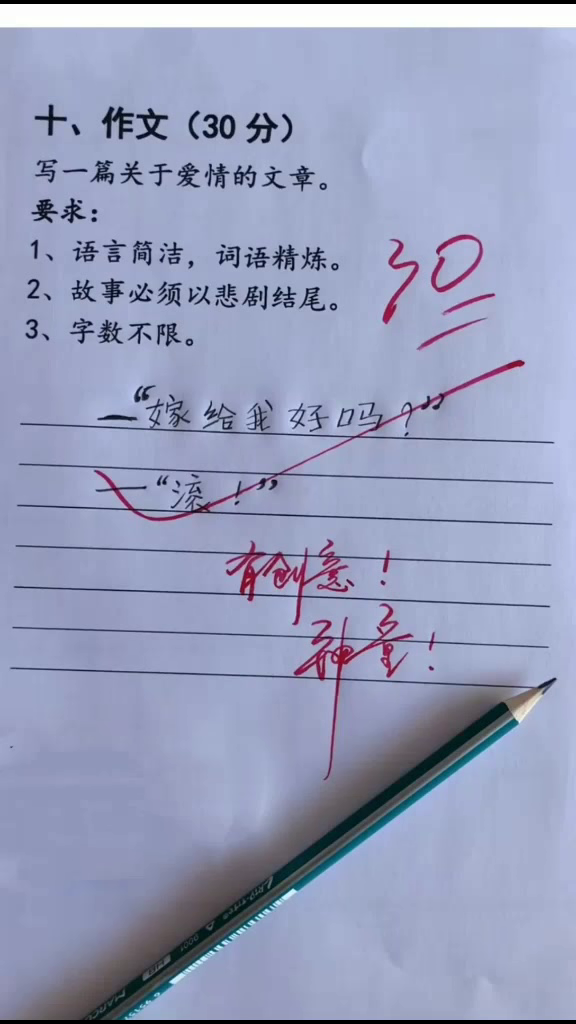 十、作文（30 分）
写一篇关于爱情的文章。
要求：
1、语言简洁，词语精炼。
2、故事必须以悲剧结尾。
3、字数不限。
30
—“嫁给我好吗？”
—“滚！”
有创意！